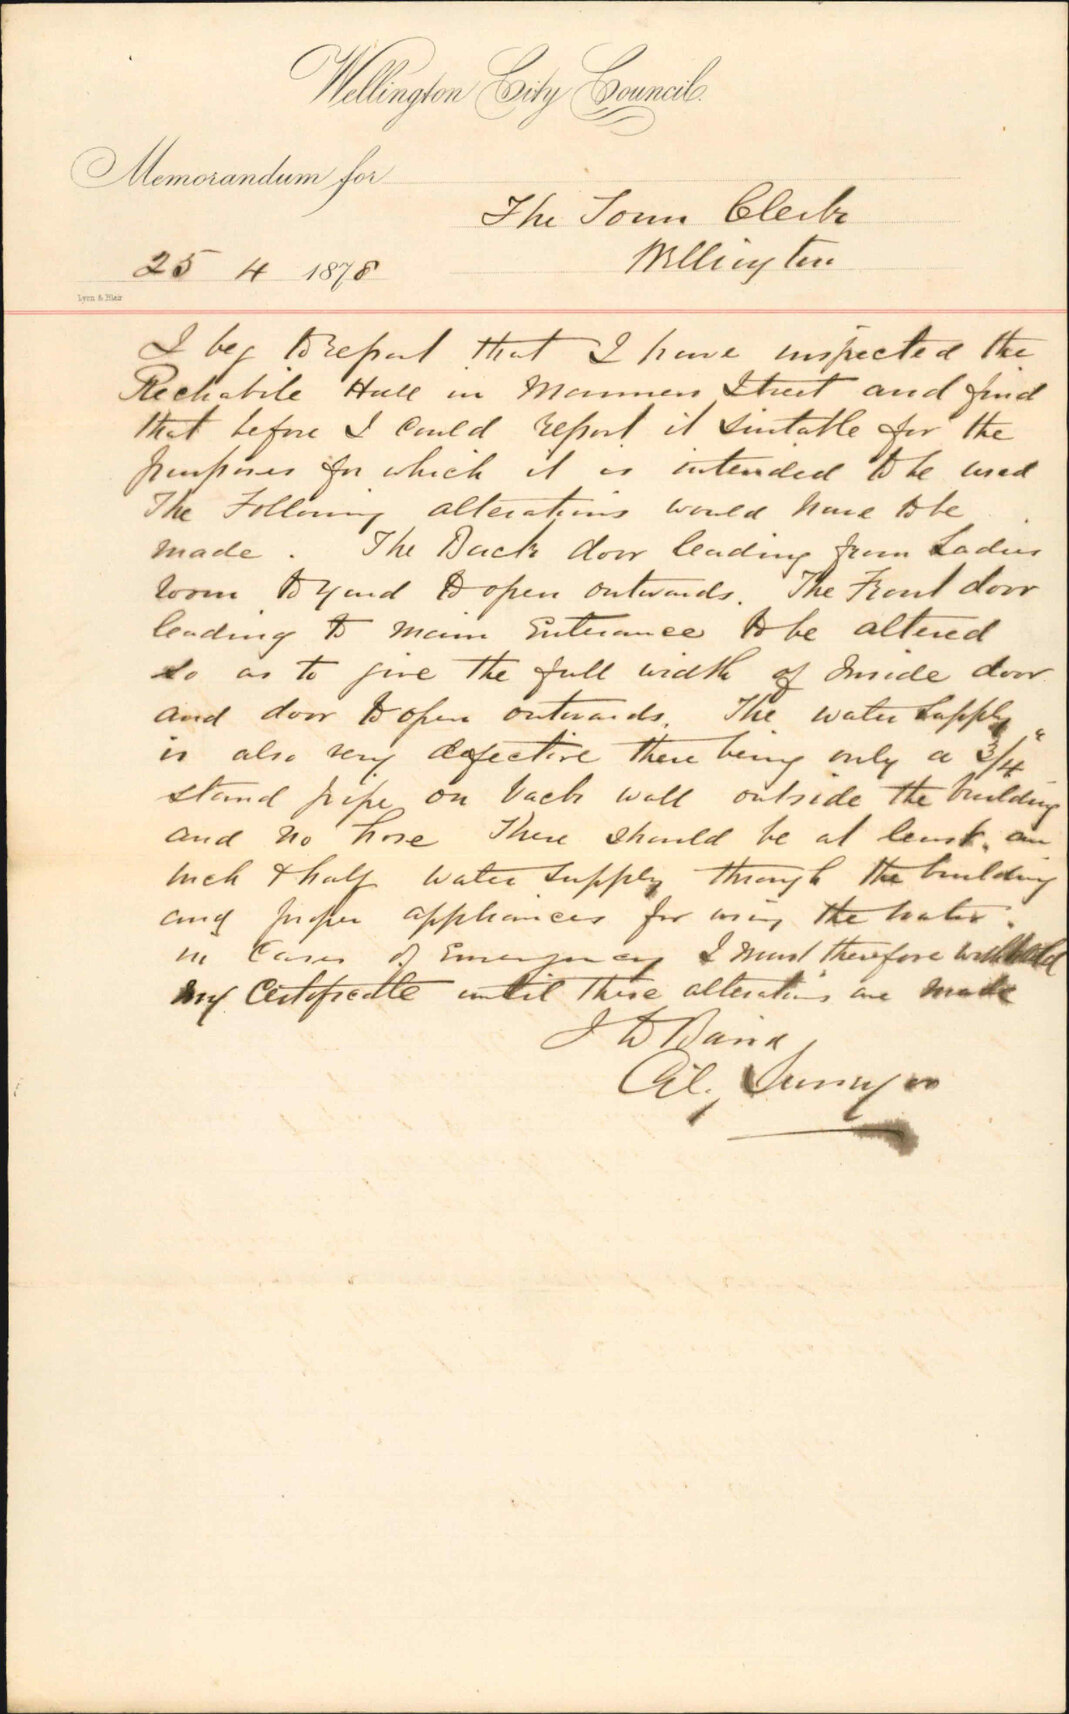 Wellington City Council.
Memorandum for
The Town Clerk
Wellington
25 4 1878
Lyon & Blair
I beg to report that I have inspected the
Rechabite Hall in Manners Street and find
that before I could report it suitable for the
purposes for which it is intended to be used
The Following alterations would have to be
made. The Back door leading from Ladies
room to yard to open outwards. The Front door
leading to main Enterance to be altered
so as to give the full width of Inside door
and door to open outwards. The water Supply
is also very defective there being only a 3/4"
stand pipe on back wall outside the building
and no hose There should be at least an
inch & half water Supply through the building
and proper appliances for using the water
in Cases of Emergency I must therefore withhold
my Certificate until these alterations are made
J D Baird
City Surveyor